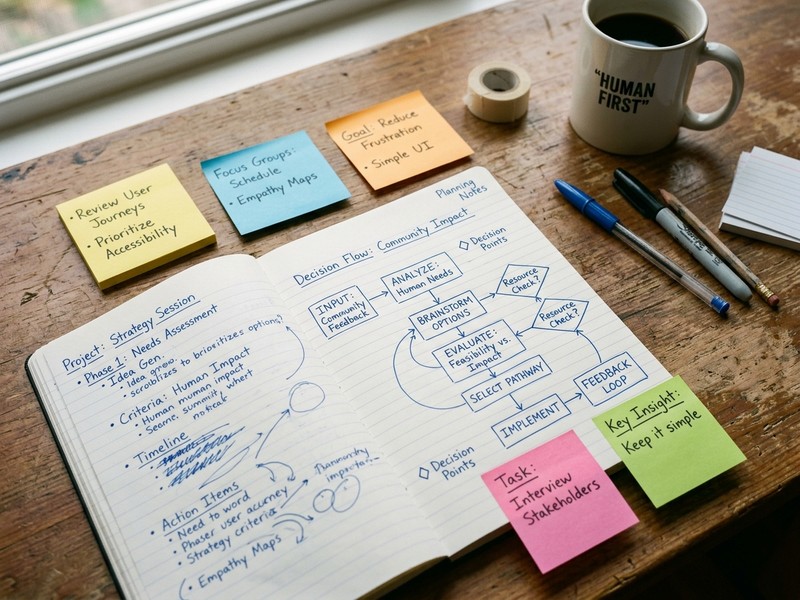 "HUMAN
FIRST"
• Review User
Journeys
• Prioritize
Accessibility
Focus Groups:
Schedule
• Empathy Maps
Goal: Reduce
Frustration
• Simple UI
Project: Strategy Session
• Phase 1: Needs Assessment
• Idea Gen.
• Idea grow.
to brioritizes options?
• Criteria: Human Impact
• Human munan impact
• Seame, summit, whert
• Timeline
• Action Items
• Need to word
• Phaser user acurney
• Strategy criteria
• Empathy Maps
Planning
Notes
Decision Flow: Community Impact
◇ Decision
Points
INPUT:
Community
Feedback
ANALYZE:
Human Needs
BRAINSTORM
OPTIONS
Resource
Check?
Resource
Check?
EVALUATE:
Feasibility vs.
Impact
SELECT PATHWAY
FEEDBACK
LOOP
IMPLEMENT
◇ Decision
Points
Task:
Interview
Stakeholders
Key Insight:
Keep it simple
Sharpie